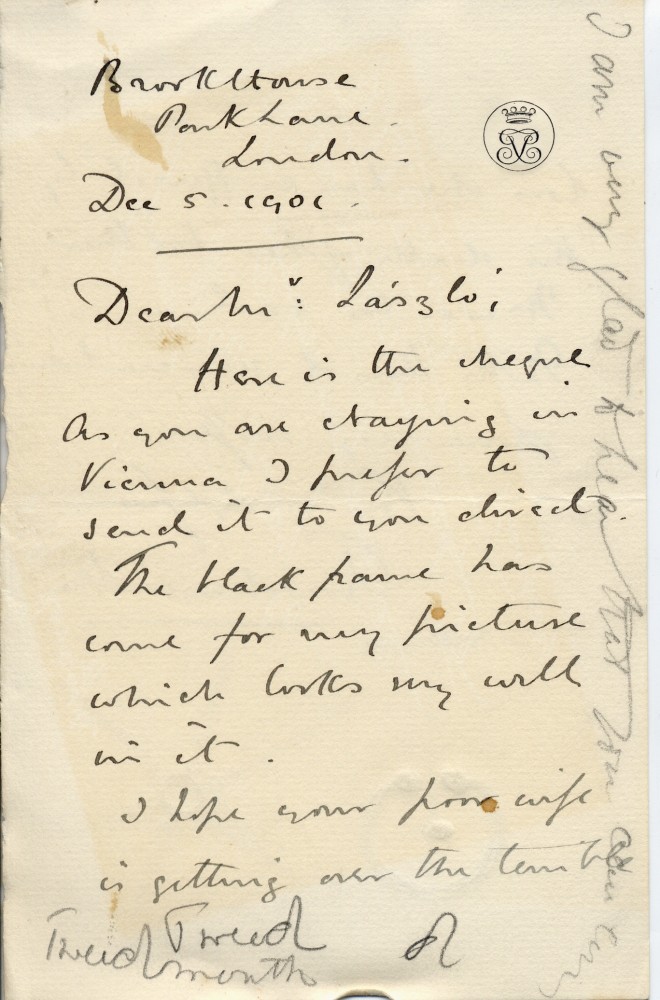 Brook House
Park Lane.
London.
Dec 5. 1901.
Dear Mr: László;
Here is the cheque
As you are staying in
Vienna I prefer to
send it to you direct.
The black frame has
come for my picture
which looks very well
in it.
I hope your poor wife
is getting over the terrible
Tweed Tweed
mouth
I am very glad to hear that you are